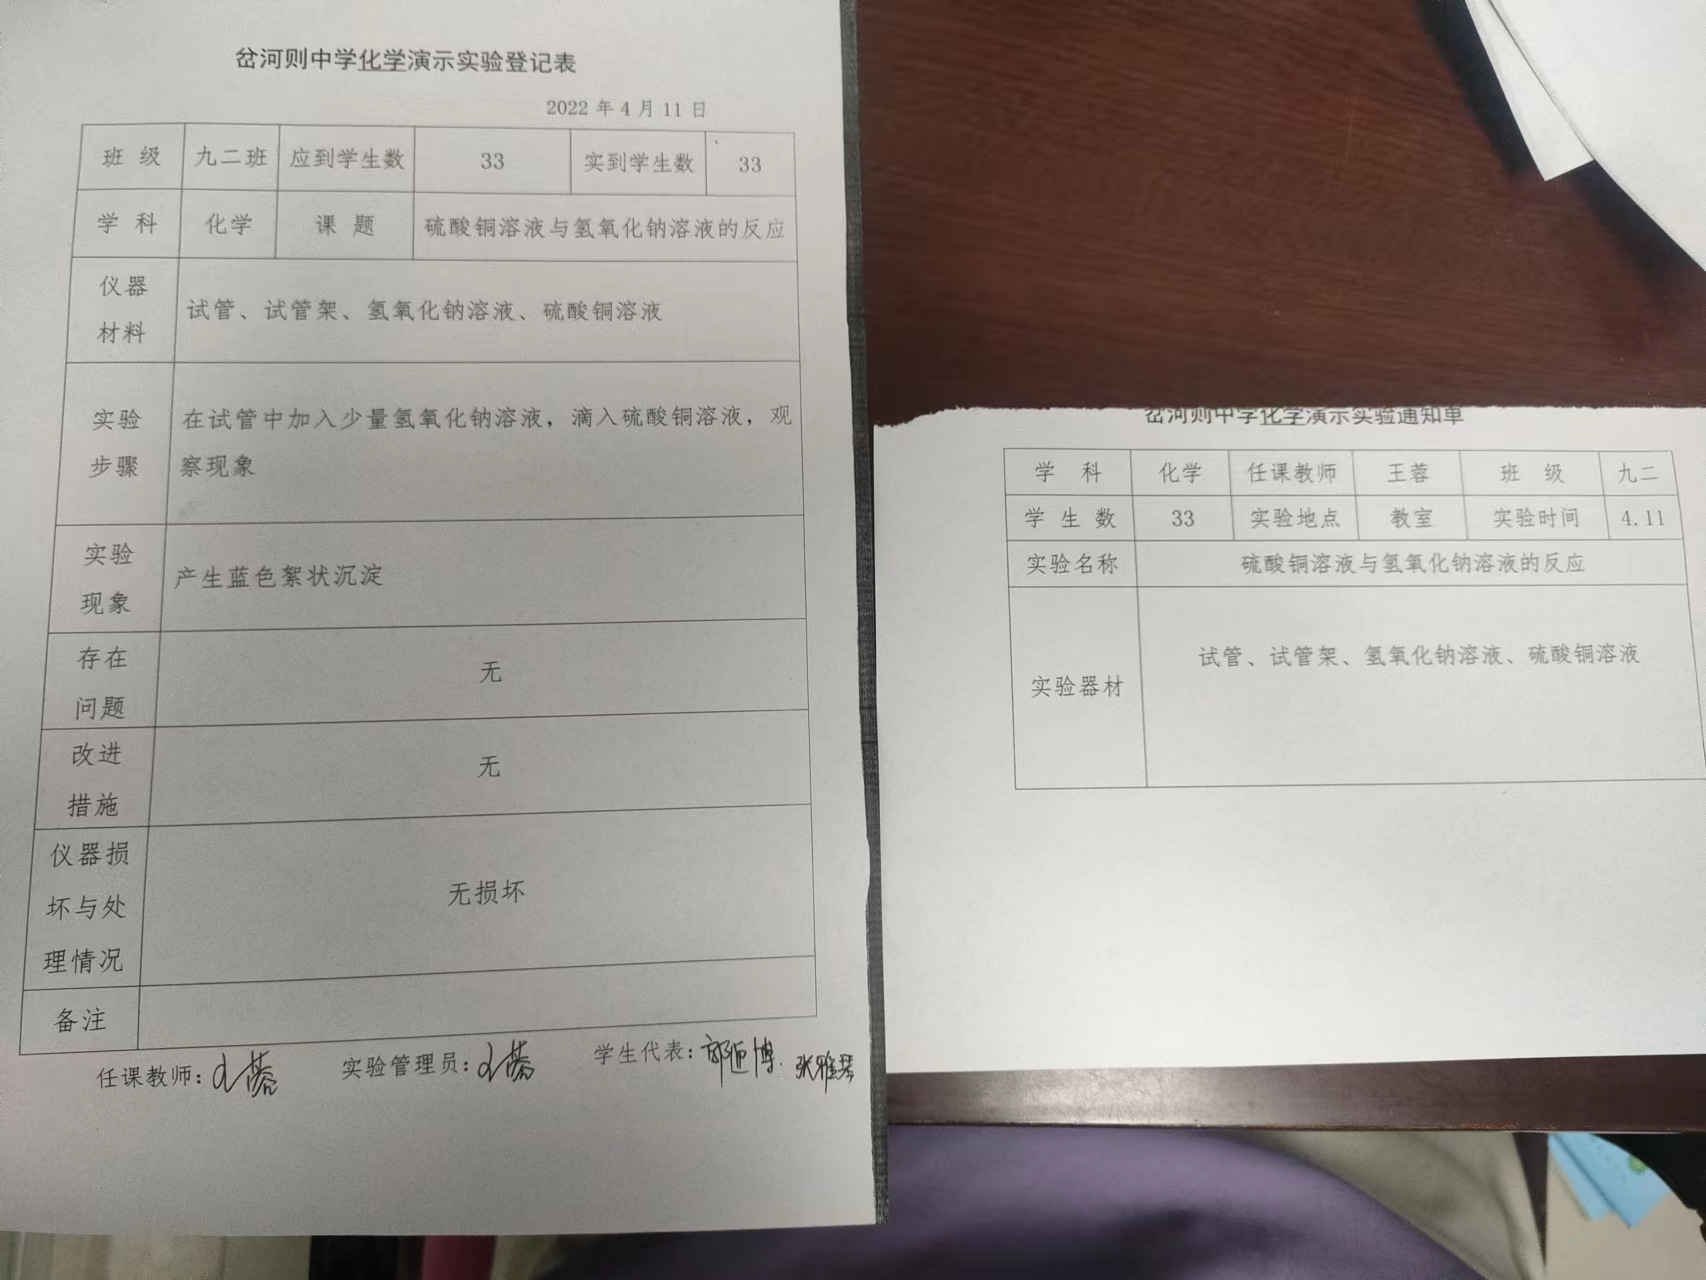 岔河则中学化学演示实验登记表
2022 年 4 月 11 日
班 级 九二班 应到学生数 33 实到学生数 33
学 科 化学 课 题 硫酸铜溶液与氢氧化钠溶液的反应
仪器
材料
试管、试管架、氢氧化钠溶液、硫酸铜溶液
实验
步骤
在试管中加入少量氢氧化钠溶液，滴入硫酸铜溶液，观
察现象
实验
现象
产生蓝色絮状沉淀
存在
问题
无
改进
措施
无
仪器损
坏与处
理情况
无损坏
备注
任课教师：王蓉 实验管理员：王蓉 学生代表： 张雅琴
岔河则中学化学演示实验通知单
学 科 化学 任课教师 王蓉 班 级 九二
学 生 数 33 实验地点 教室 实验时间 4.11
实验名称 硫酸铜溶液与氢氧化钠溶液的反应
实验器材
试管、试管架、氢氧化钠溶液、硫酸铜溶液